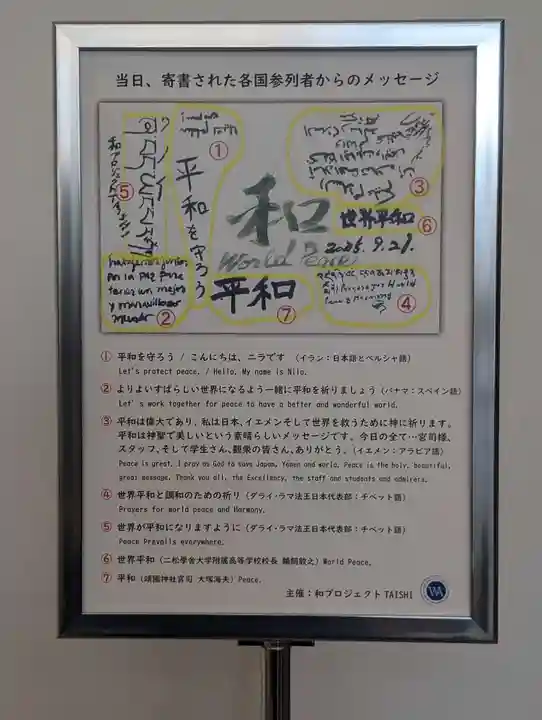 当日、寄書された各国参列者からのメッセージ
①
平和を守ろう
和
World Peace
世界平和
⑥
2025. 9. 21.
③
⑤
平和
⑦
②
④
por la paz para
y maravilloso
① 平和を守ろう / こんにちは、ニラです (イラン：日本語とペルシャ語)
Let's protect peace. / Hello, My name is Nila.
② よりよいすばらしい世界になるよう一緒に平和を祈りましょう (パナマ：スペイン語)
Let's work together for peace to have a better and wonderful world.
③ 平和は偉大であり、私は日本、イエメンそして世界を救うために神に祈ります。
平和は神聖で美しいという素晴らしいメッセージです。今日の全て…宮司様、
スタッフ、そして学生さん、観衆の皆さん、ありがとう。(イエメン：アラビア語)
Peace is great, I pray as God to save Japan, Yemen and world. Peace is the holy, beautiful,
great message. Thank you all, the Excellency, the staff and students and admirers.
④ 世界平和と調和のための祈り (ダライ・ラマ法王日本代表部：チベット語)
Prayers for world peace and Harmony.
⑤ 世界が平和になりますように (ダライ・ラマ法王日本代表部：チベット語)
Peace Prevails everywhere.
⑥ 世界平和 (二松學舍大学附属高等学校校長 鵜飼敦之) World Peace.
⑦ 平和 (靖國神社宮司 大塚海夫) Peace.
主催：和プロジェクト TAISHI